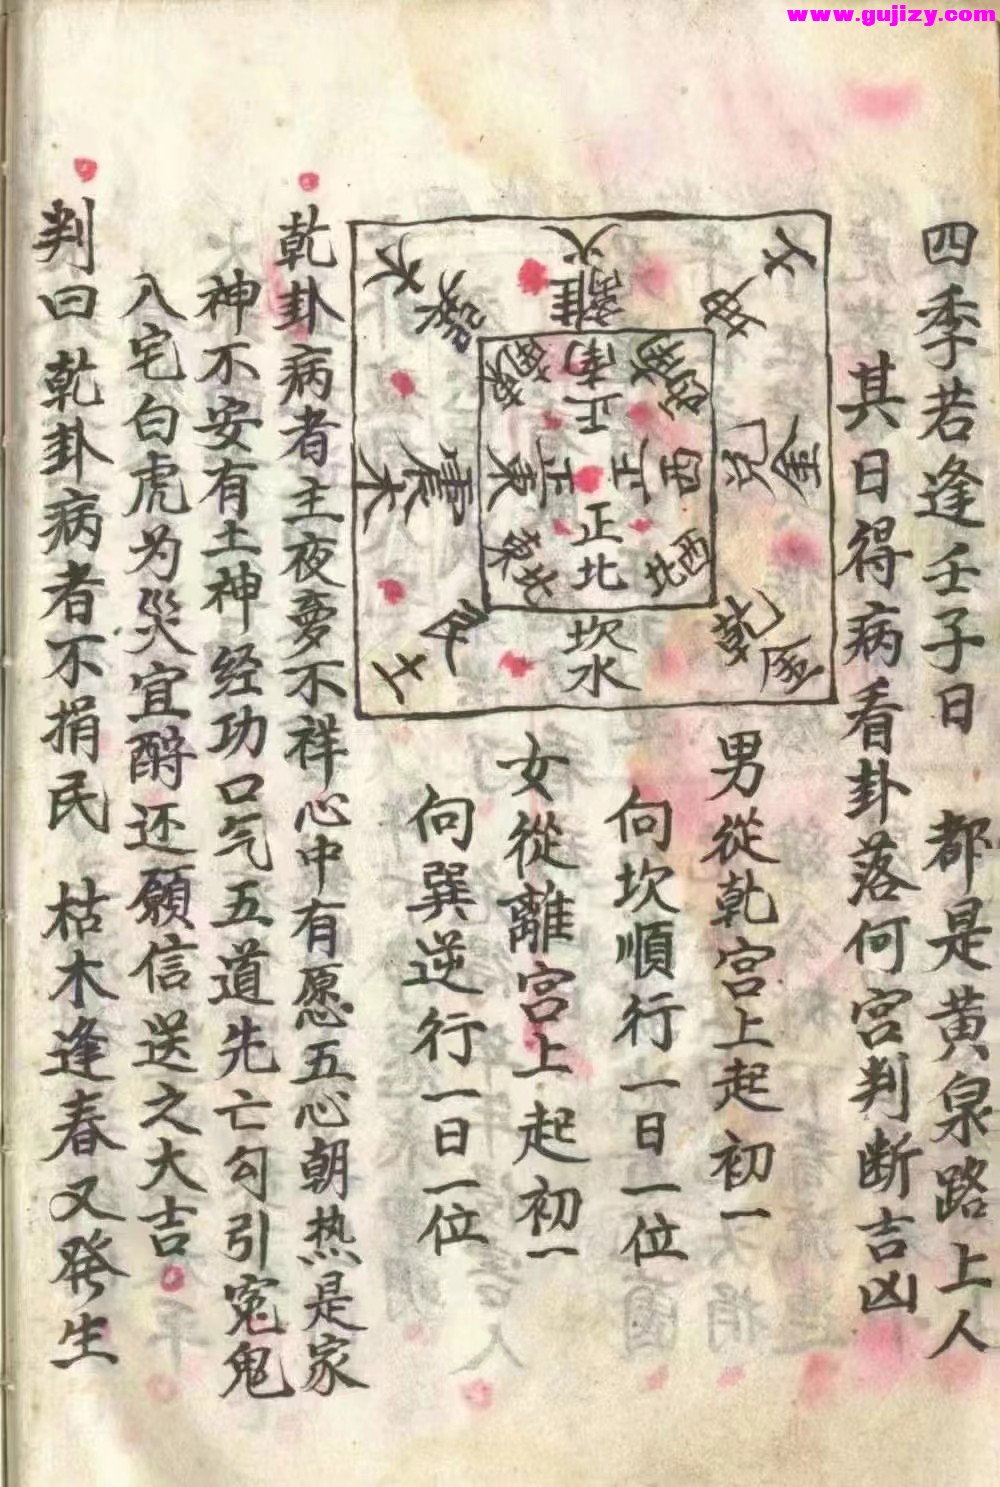 www.gujizy.com
四季若逢壬子日 都是黄泉路上人
其日得病看卦落何宫判断吉凶
火 離 南 正
火 坤 西南
金 兑 西 正
金 乾 西北
水 坎 北 正
土 艮 東北
木 震 東 正
木 巽 東南
男從乾宫上起初一
向坎順行一日一位
女從離宫上起初一
向巽逆行一日一位
乾卦病者主夜夢不祥心中有愿五心朝热是家
神不安有土神经功口气五道先亡勾引冤鬼
入宅白虎为災宜酧还願信送之大吉
判曰 乾卦病者不捐民 枯木逢春又發生